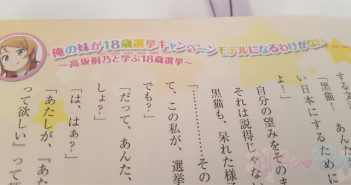 俺の妹が18歳選挙キャンペーンモデルになるわけがない
～高坂桐乃と学ぶ18歳選挙～
する文
「黒猫、あん
い日本にするために
よ！」
自分の望みをそのま
それは説得じゃな
黒猫も、呆れた様
「………その
て、この私が、選挙
でも？」
「だって、あんた、
しょ？」
「は、はぁ？」
「あたしが、『あた
って欲しい』って